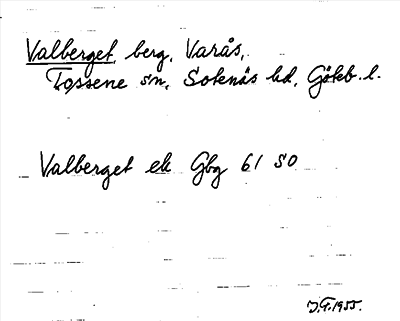 Valberget, berg, Varås,
Tossene sn, Sotenäs hd, Göteb. l.
Valberget ek Gbg 61 SO
J.F. 1955.